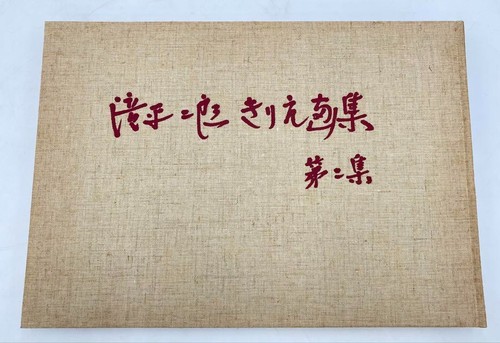 滝平二郎 きりえ画集
第二集